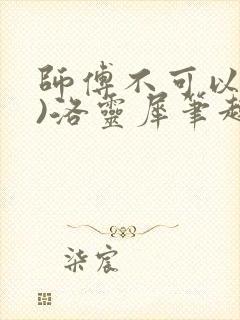 師傅不可以
)洛靈犀筆趣
柒宸